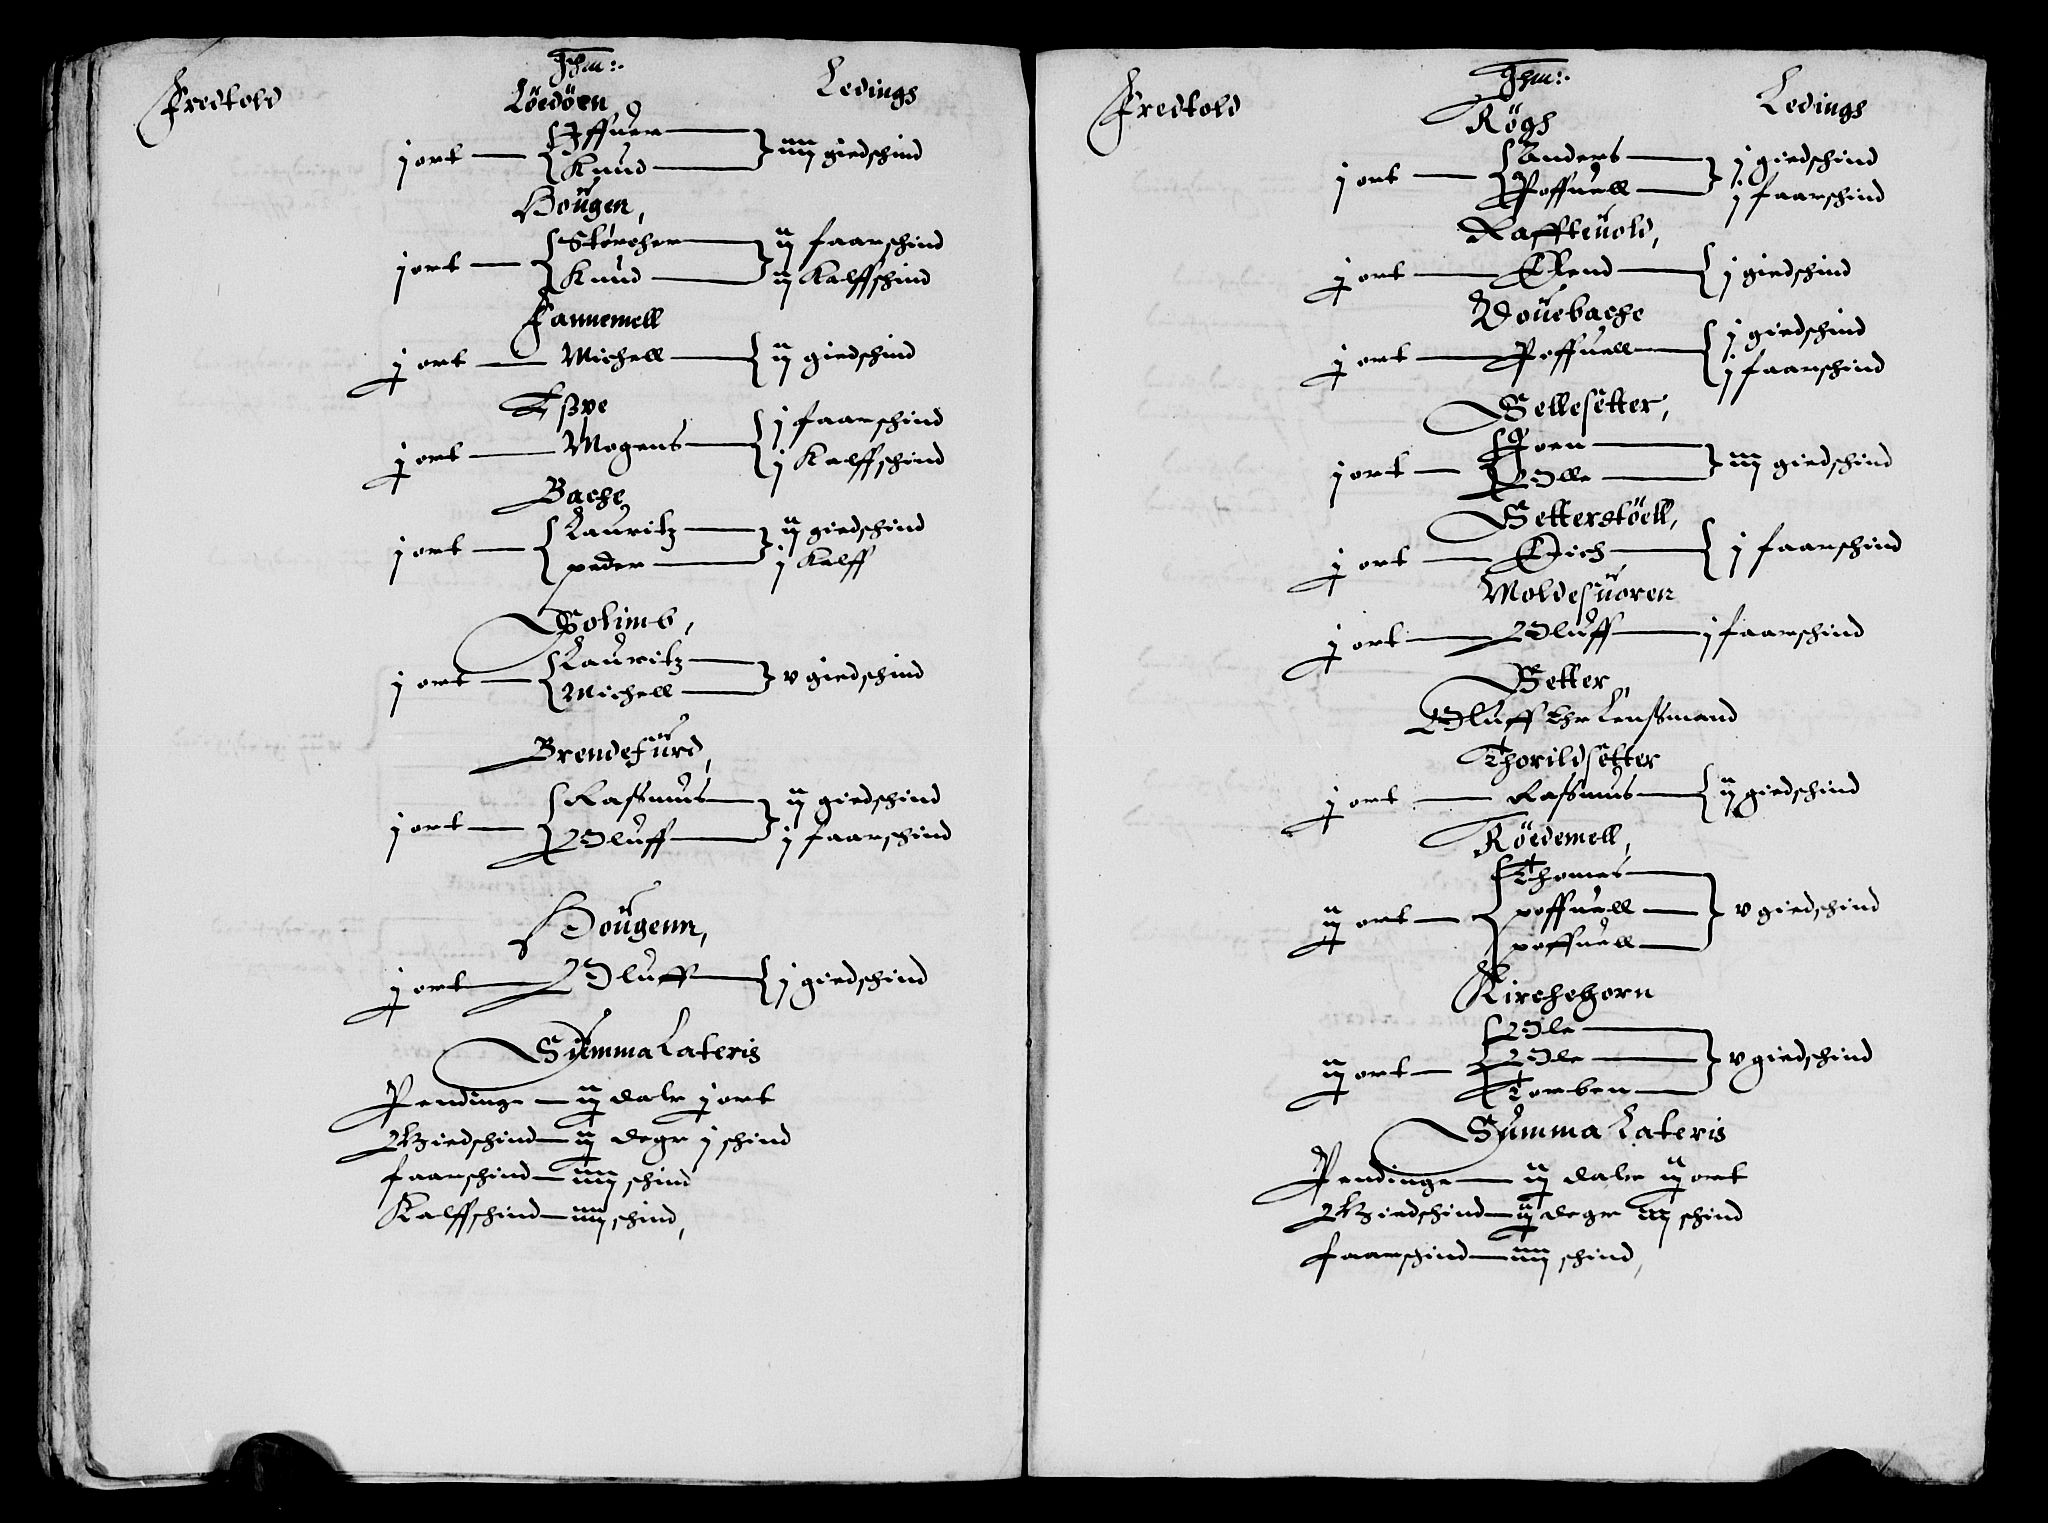 Fredtold Jhm: Ledings
Löedöen
j ort { Iffuer
Knud } iiij giedschind
Hougen,
j ort { Størcher
Knud } ij faarschind
ij Kalffschind
Fannemell
j ort Michell { ij giedschind
Eßpe
j ort Mogens { j faarschind
j Kalffschind
Bache
j ort { Lauritz
peder } ij giedschind
j Kalff
Solimb,
j ort { Lauritz
Michell } v giedschind
Brendefurd,
j ort { Rassmus
Oluff } ij giedschind
j faarschind
Hougenn,
j ort Oluff { j giedschind
Summa Lateris
Pendinge ij dalr j ort
Giedschind ij degr j schind
faarschind iiij schind
Kalffschind iiij schind,
Fredtold Jhm: Ledings
Rögh
j ort { Anders
Poffuell } j giedschind
j faarschind
Raffteuold,
j ort Erend { j giedschind
Douebache
j ort Poffuell { j giedschind
j faarschind
Sellesetter,
j ort { Joen
Olle } iiij giedschind
Setterstöell,
j ort Erich { j faarschind
Moldesuoren
j ort Oluff j faarschind
Setter,
Oluff Ehr Lenssmand
Thorildsetter
j ort Rassmus { ij giedschind
Röedemell,
ij ort { Thomes
poffuell
poffuell } v giedschind
Kirchehorn
ij ort { Ole
Ole
Torben } v giedschind
Summa Lateris
Pendinge ij dalr ij ort
Giedschind ij degr iij schind
faarschind iiij schind,